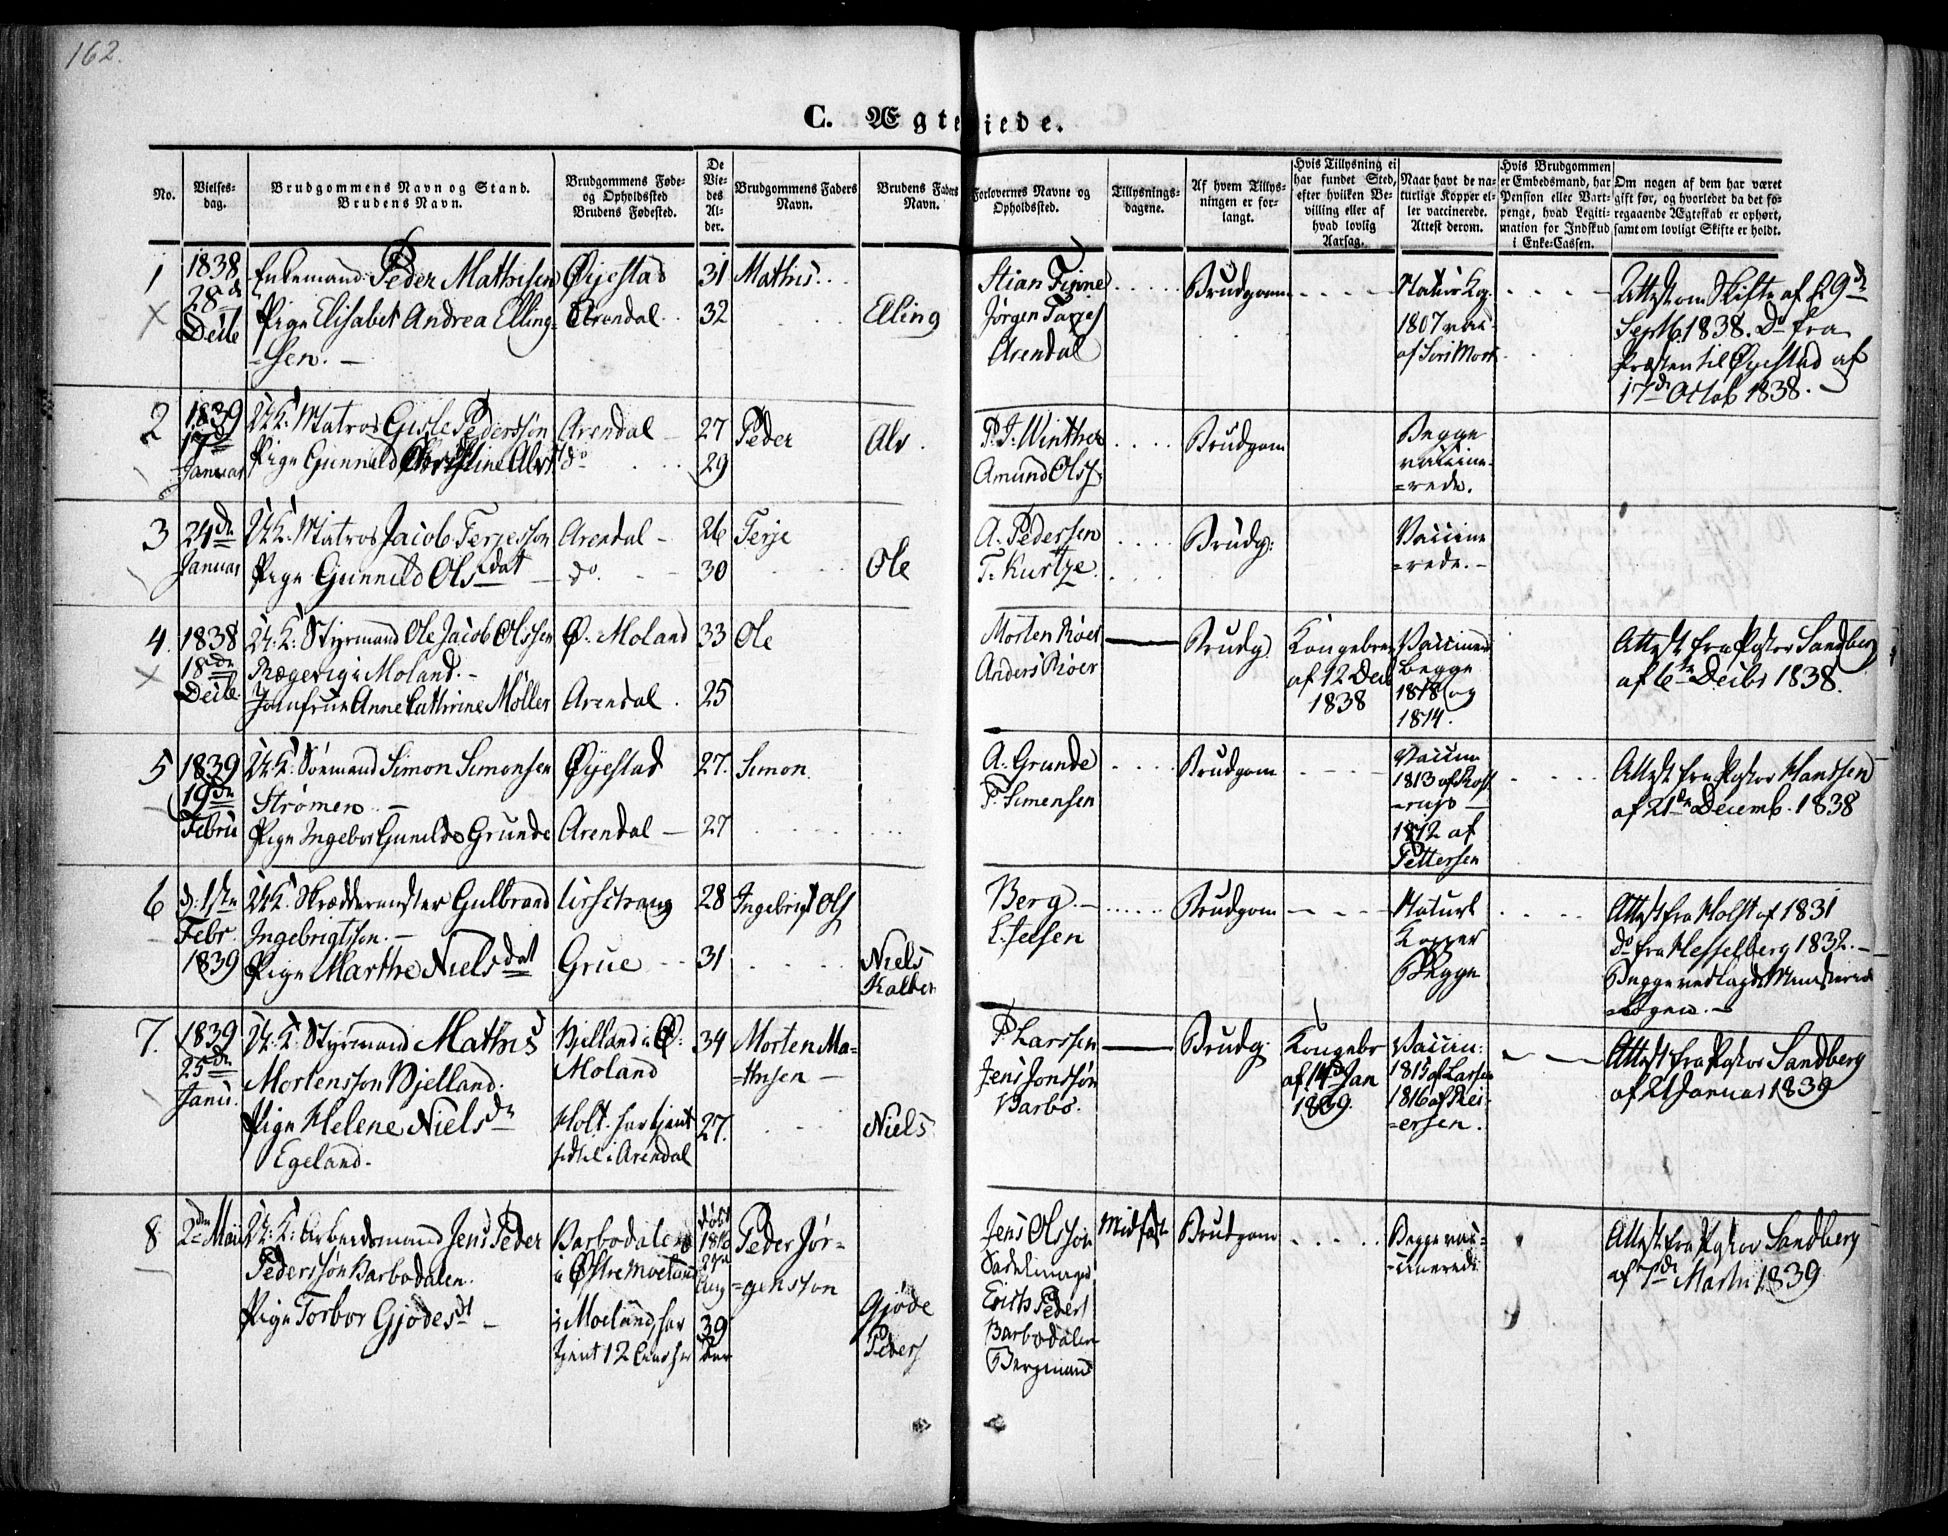 162.
C. Ægteviede.
No.
Vielses-
dag.
Brudgommens Navn og Stand.
Brudens Navn.
Brudgommens Føde-
og Opholdssted
Brudens Fødested.
De
Vie-
des
Al-
der.
Brudgommens Faders
Navn.
Brudens Faders
Navn.
Forlovernes Navne og
Opholdssted.
Tillysnings-
dagene.
Af hvem Tillys-
ningen er for-
langt.
Hvis Tillysning ei
har fundet Sted,
efter hvilken Be-
villing eller af
hvad lovlig
Aarsag.
Naar havt de na-
turlige Kopper el-
ler vaccinerede.
Attest derom.
Hvis Brudgommen
er Embedsmand, har
Pension eller Vart-
penge, hvad Legiti-
mation for Indskud
i Enke-Cassen.
Om nogen af dem har været
gift før, og hvorledet da det fo-
regaaende Ægteskab er ophørt,
samt om lovligt Skifte er holdt.
1
1838
28de
Decbr
Enkemand: Peder Mathisen
Pige Elisabet Andrea Elling-
-sen. -
Øyestad
Arendal
31
32
Mathis
Elling
Stian Finne
Jørgen Tarjes
Arendal
Brudgom
Naturlig.
1807 vac-
af
Attest om Skifte af 29de
Septb. 1838. Do fra
Præsten til Øyestad af
17de Octob 1838. -
2
1839
17de
Januar
U: K: Matros Gisle Pedersson
Pige Gunnild Christine Alvs
Arendal
do
27
29
Peder
Alv.
P. J. Winther
Amund Olss.
Brudgom
Begge
vaccine-
-rede.
3
24de
Januar
U: K: Matros Jacob Terjesson
Pige Gunnild Olsdat
Arendal -
do.
26
30
Terje
Ole
A. Pedersen
T. Kurtze.
Brudg:
Vaccine
-rede. -
4.
1838
18de
Decbr.
U: K: Styrmand Ole Jacob Olssen
Rægevig i Moland. -
Jomfrue Anne Cathrine Møller
Ø. Moland
Arendal.
33
25
Ole
Morten Røer
Anders Röer
Brudg.
Kongebrev
af 12 Dec
1838
Vaccinerd
begge
1818 og
1814.
Attest fra Pastor Sandberg
af 6te Decbr 1838.
5
1839
19de
Febru
U: K: Sömand Simon Simonsen
Strömen. -
Pige Ingebor Gunilde Grunde
Øyestad
Arendal -
27.
27
Simon.
A. Grunde
P. Simensen
Brudgom
Vaccine
1813 af
1812 af
Pettersen
Attest fra Pastor Hanssen
af 21de Decemb. 1838
6
d: 1ste
Febr.
1839
U: K: Skræddermester Gulbrand
Ingebrigtsson. -
Pige Marthe Nielsdat
Grue
28
31
Ingebrigt Ols
Niels
Berg.
Brudgom
Naturl
Kopper
Begge
Attest fra Holst af 1831
do fra Hesselberg 1832. -
Begge vedlagde Ministerial
-bogen. -
7.
1839
25de
Janu.
U: K: Styrmand Mathis
Mortensson Bjelland.
Pige Helene Niels
Egeland.
Bjelland i Ø:
Moland
Holt. har tjent
sidst i Arendal
34
27.
Morten Ma-
-thisen -
Niels
P Larssen
Jens Jonssön
Barbo.
Brudg.
Kongebr
af 14de Jan
1839.
Vaccin:
1815 af Larsen
1816 af Rei-
-ersen.
Attest fra Pastor Sandberg
af 21 Januar 1839
8
2den Mai
U: K: Arbeidsmand Jens Peder
Pederssön Barbodalen.
Pige Torbor Gjödesdt -
Barbodalen
i Østre Moeland
i Moeland, har
tjent 12 Aar her
döbt
1816
Aug
39
Peder Jör-
-genson
Gjöde
Peders
Jens Olsson
Sadelmager
Erich Peders
Barbodalen
Bergmand
Midfast
Brudgom
Begge vac-
-cinerede
Attest fra Pastor Sandberg
af 7de Marti 1839